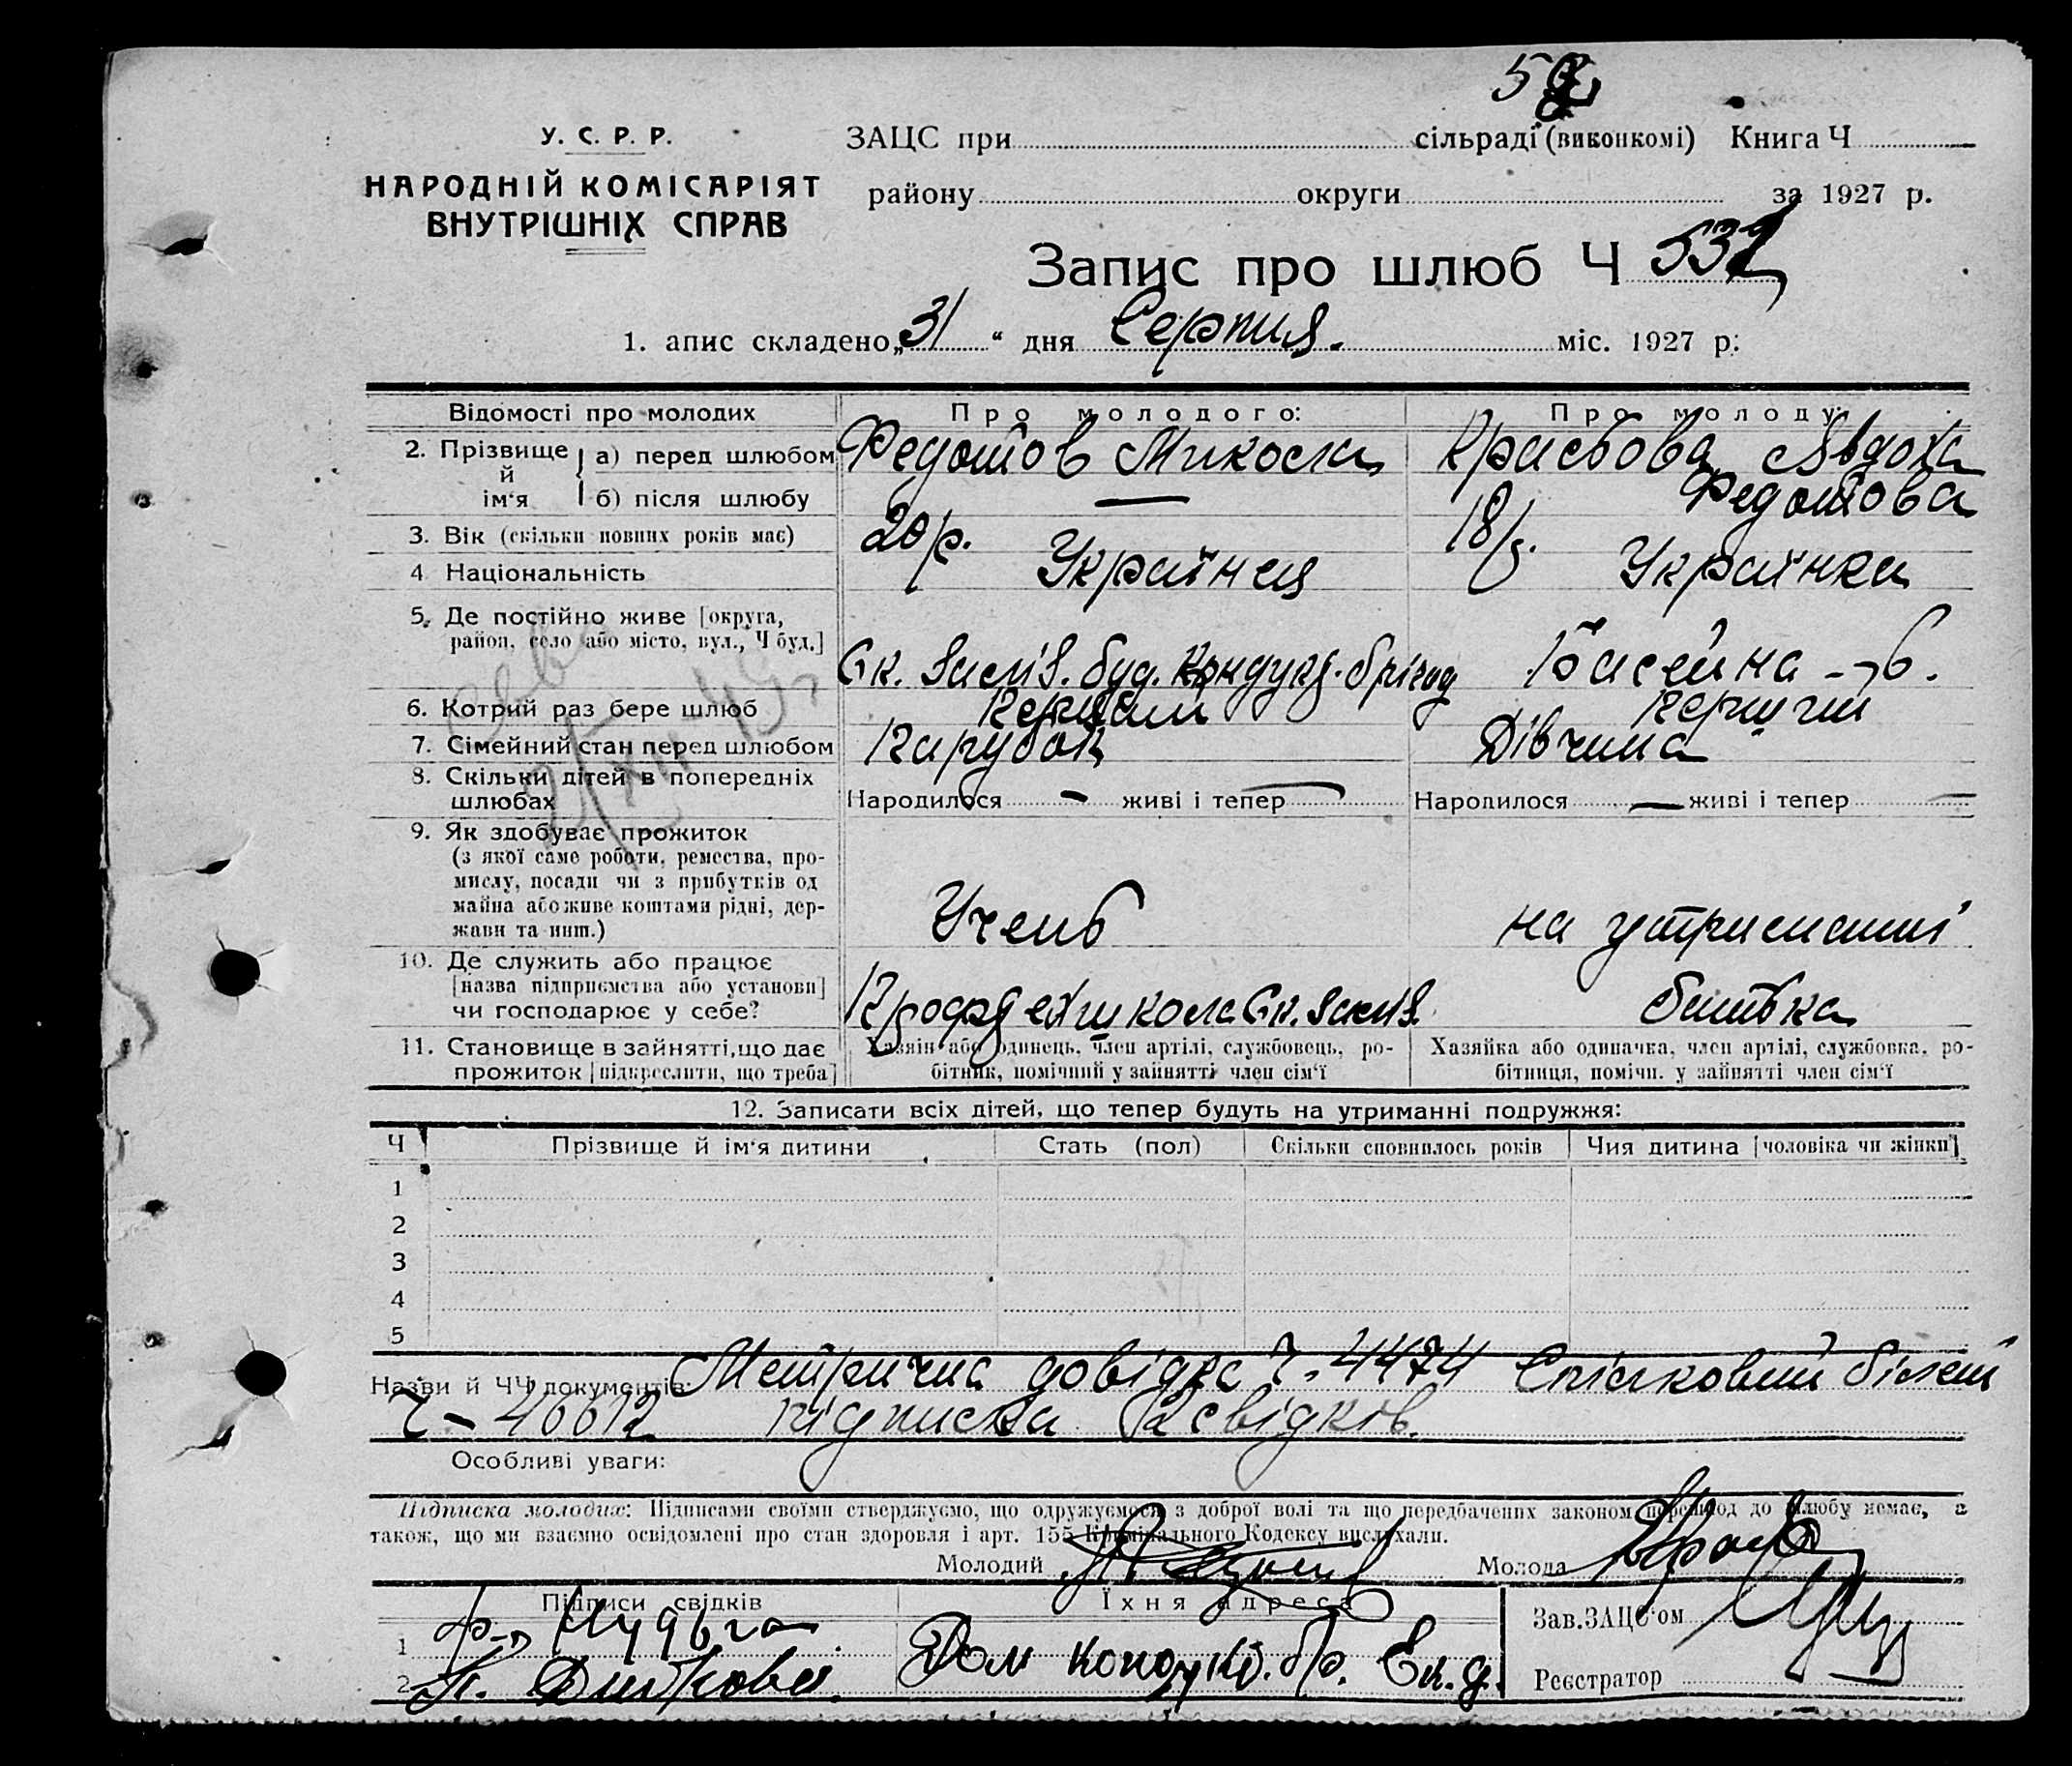 У. С. Р. Р.
НАРОДНІЙ КОМІСАРІЯТ
ВНУТРІШНІХ СПРАВ
ЗАЦС при сільраді (виконкомі) Книга Ч
району округи за 1927 р.
Запис про шлюб Ч 532
1. апис складено „31“ дня Серпня. міс. 1927 р:
Відомості про молодих Про молодого: Про молоду:
2. Прізвище й ім'я а) перед шлюбом Федотов Микола Авдотя
б) після шлюбу — Федотова
3. Вік (скільки повних років має) 20 р. 18 р.
4 Національність Українец Українка
5. Де постійно живе [округа,
район, село або місто, вул., Ч буд.] буд. Кондукт. бригад Басейна - 6.
6. Котрий раз бере шлюб Перший Перший
7. Сімейний стан перед шлюбом Парубок Дівчина
8. Скільки дітей в попередніх
шлюбах Народилося — живі і тепер — Народилося — живі і тепер —
9. Як здобуває прожиток
(з якої саме роботи, ремества, про-
мислу, посади чи з прибутків од
майна або живе коштами рідні, дер-
жави та инш.) Учень на утриманні
10. Де служить або працює
[назва підприємства або установи]
чи господарює у себе? Профтехшкола батька
11. Становище в зайнятті, що дає
прожиток [підкреслити, що треба]
Хазяїн або одинець, член артілі, службовець, ро-
бітник, помічний у зайнятті член сім'ї
Хазяйка або одиначка, член артілі, службовка, ро-
бітниця, помічн. у зайнятті член сім'ї
12. Записати всіх дітей, що тепер будуть на утриманні подружжя:
Ч Прізвище й ім'я дитини Стать (пол) Скільки сповнилось років Чия дитина [чоловіка чи жінки]
1
2
3
4
5
Назви й ЧЧ документів: Метрична довідка Ч. 4474 Спілковий білет
Ч - 46612 підписка свідків.
Особливі уваги:
Підписка молодих: Підписами своїми стверджуємо, що одружуємося з доброї волі та що передбачених законом перешкод до шлюбу немає, а
також, що ми взаємно освідомлені про стан здоровля і арт. 155 Кримінального Кодексу вислухали.
Молодий Молода
Підписи свідків Їхня адреса Зав. ЗАЦС'ом
1
2 Дом кондукт. бр. Ек. д. Реєстратор